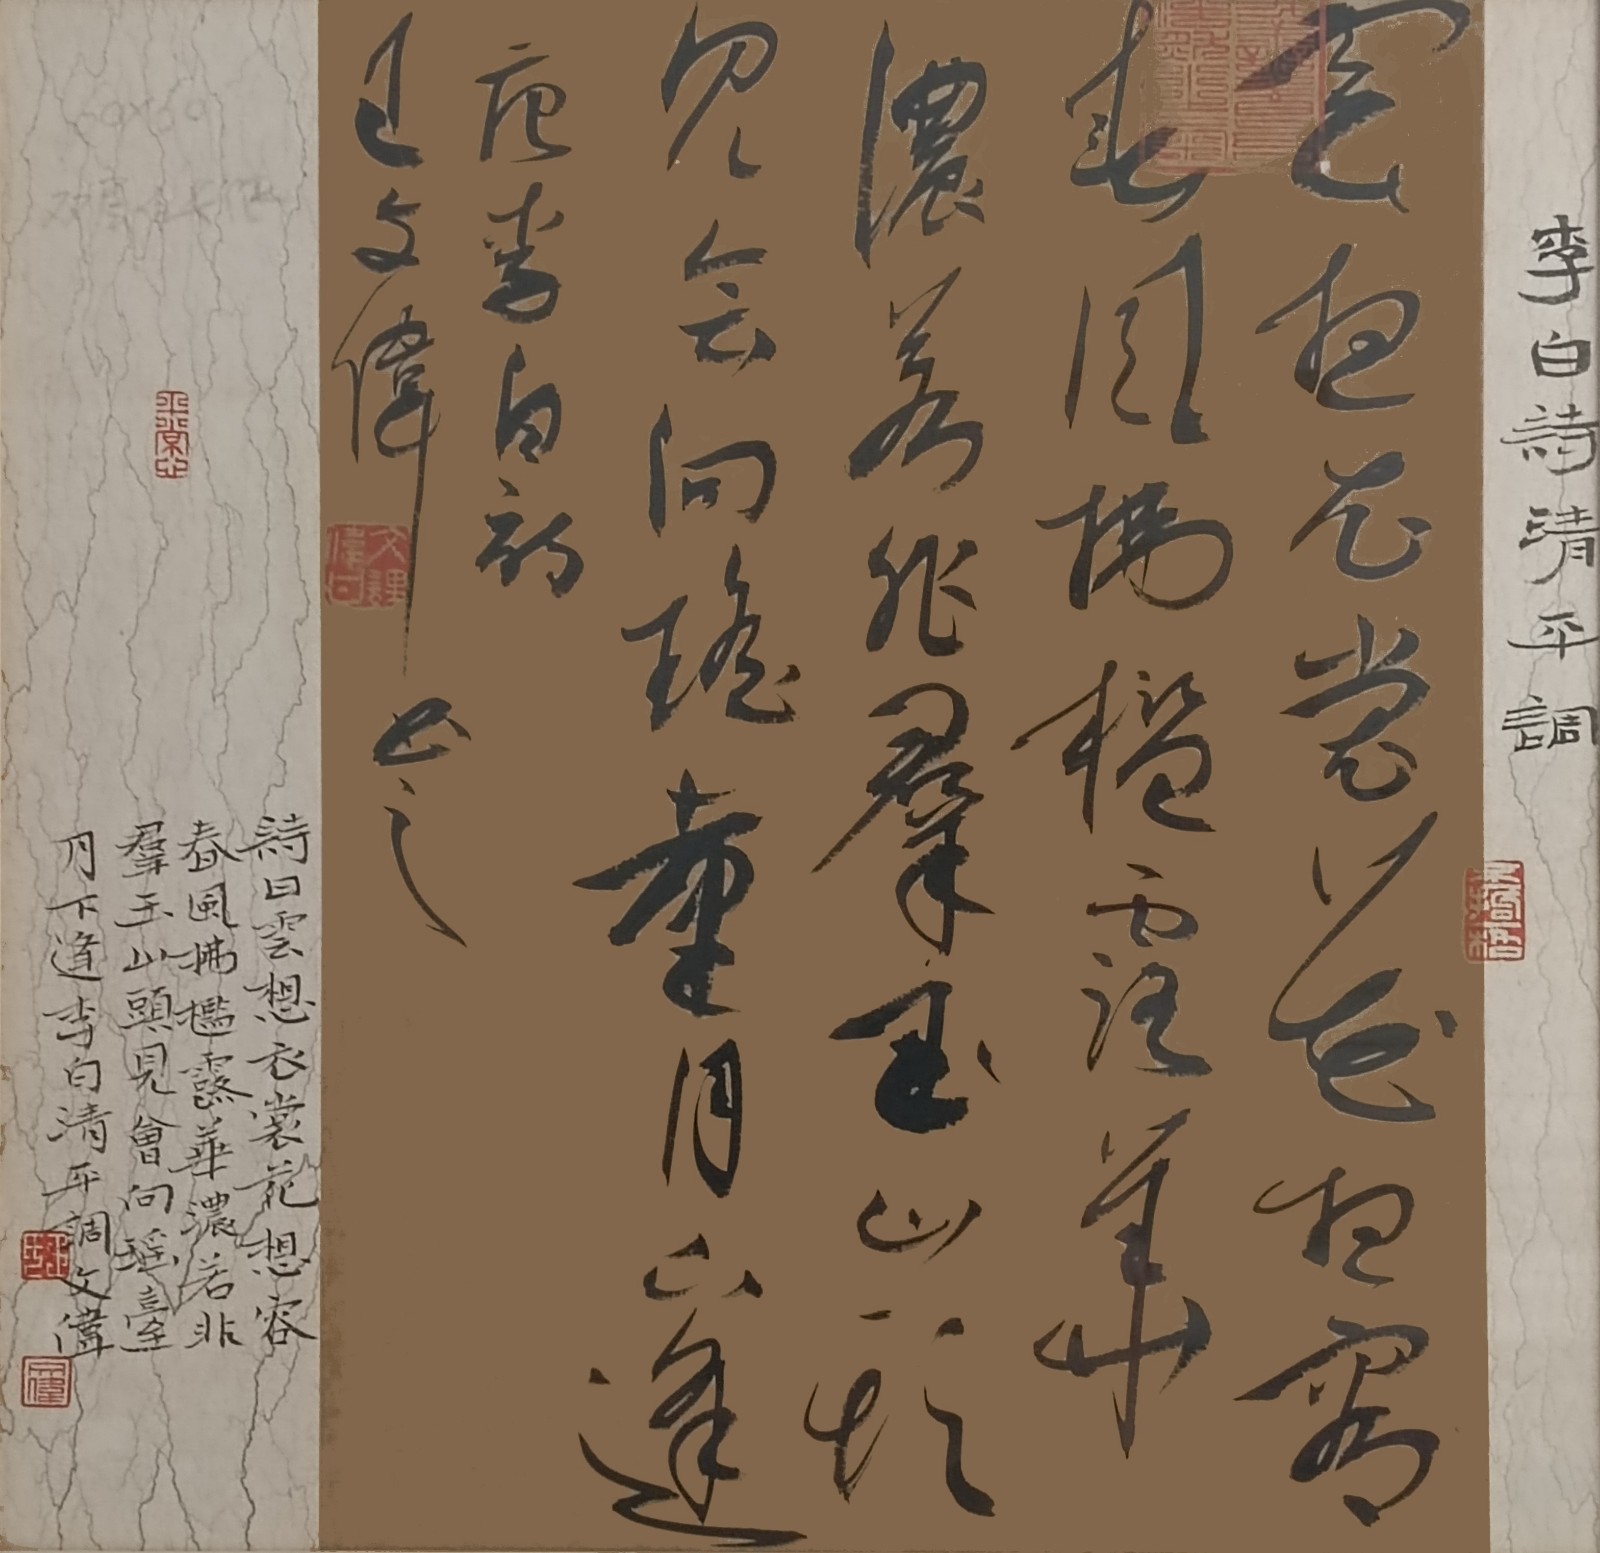 李白詩清平調
雲想衣裳花想容
春風拂檻露華
濃若非羣玉山頭
見会向瑤臺月下逢
唐李白詩
王文偉
詩曰雲想衣裳花想容
春風拂檻露華濃若非
羣玉山頭見會向瑤臺
月下逢李白清平調文偉